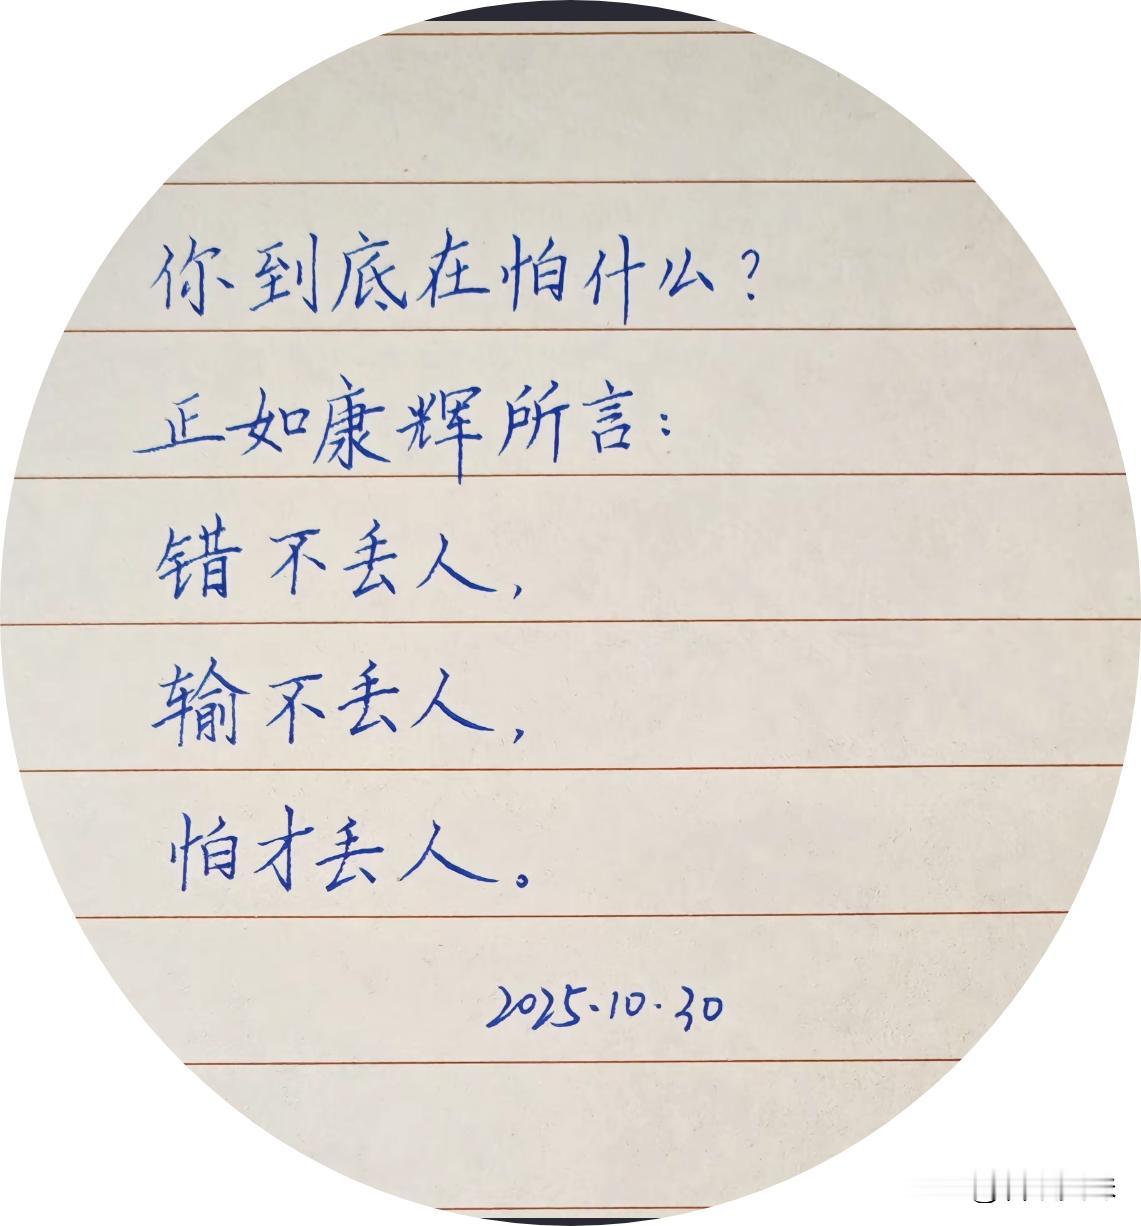 你到底在怕什么?
正如康辉所言:
错不丢人,
输不丢人,
怕才丢人。
2025.10.30